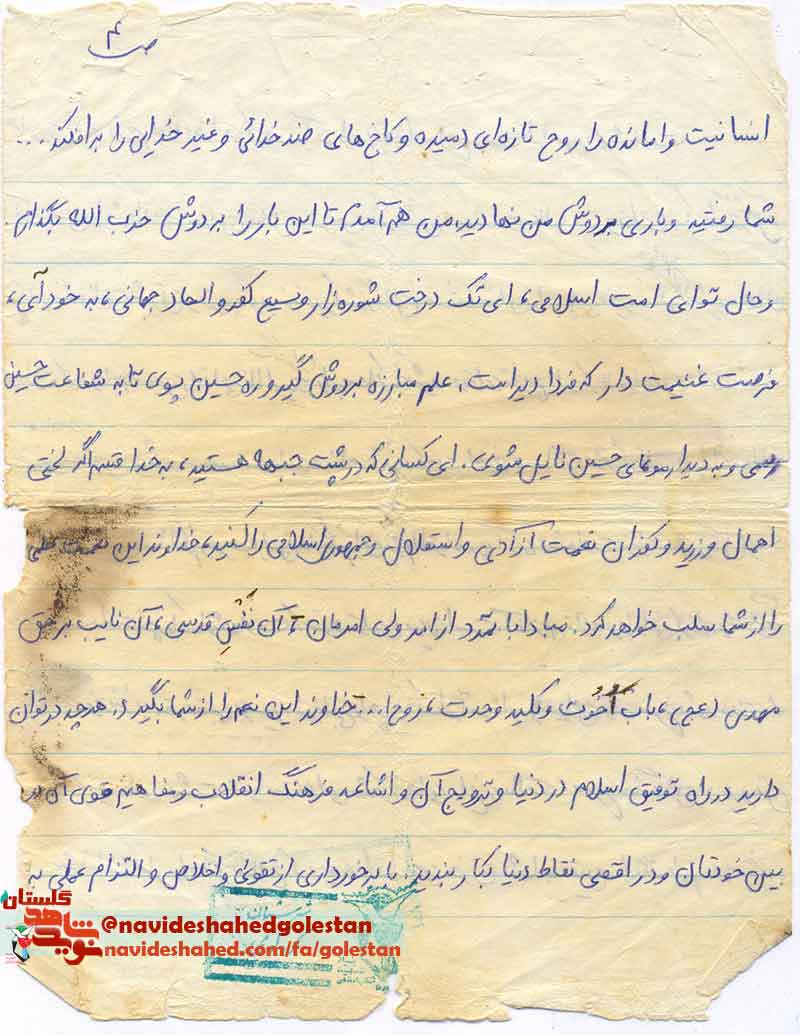 ص ۴
انسانیت وامانده را روح تازه‌ای دمیده و کاخ‌های ضد خدائی و غیر خدایی را برافکند ...
شما رفتید و باری بر دوش من نهادید، من هم آمدم تا این بار را بر دوش حزب الله بگذارم.
و حال تو ای امت اسلامی، ای تک درخت شوره‌زار وسیع کفر و الحاد جهانی، به خود آی،
فرصت غنیمت دار که فردا دیر است، علم مبارزه بر دوش گیر و ره حسین پوی تا به شفاعت حسین
رسی و به دیدار مولای حسین نایل شوی. ای کسانی که در پشت جبهه هستید، به خدا قسم اگر لختی
اهمال ورزید و کفران نعمت آزادی و استقلال و جمهوری اسلامی را کنید، خداوند این نعمت
را از شما سلب خواهد کرد. مبادا با تمرد از امر ولی امرمان، آن نفس قدسی، آن نایب بر حق
مهدی (عج)، باب اخوت و کلید وحدت، روح ا... خداوند این نعم را از شما بگیرد. هر چه در توان
دارید در راه توفیق اسلام در دنیا و ترویج آن و اشاعه فرهنگ انقلاب و مفاهیم قوی آن در
بین خودتان و در اقصی نقاط دنیا بکار بندید. با برخورداری از تقوی و اخلاص و التزام عملی به
گلستان
نوید شاهد
@navideshahedgolestan
navideshahed.com/fa/golestan